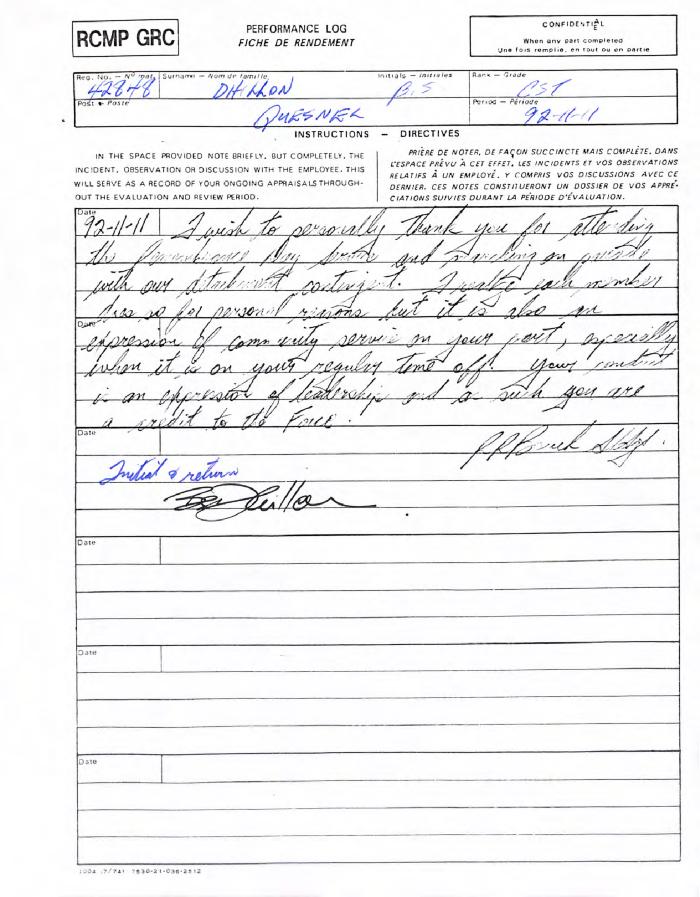 RCMP GRC
PERFORMANCE LOG
FICHE DE RENDEMENT
CONFIDENTIEL
When any part completed
Une fois remplie, en tout ou en partie
Reg. No. — Nº mat. Surname — Nom de famille Initials — Initiales Rank — Grade
42848 DHILLON B.S CST
Post — Poste Period — Période
QUESNEL 92-11-11
INSTRUCTIONS — DIRECTIVES
IN THE SPACE PROVIDED NOTE BRIEFLY, BUT COMPLETELY, THE
INCIDENT, OBSERVATION OR DISCUSSION WITH THE EMPLOYEE. THIS
WILL SERVE AS A RECORD OF YOUR ONGOING APPRAISALS THROUGH-
OUT THE EVALUATION AND REVIEW PERIOD.
PRIÈRE DE NOTER, DE FAÇON SUCCINCTE MAIS COMPLÈTE, DANS
L'ESPACE PRÉVU À CET EFFET, LES INCIDENTS ET VOS OBSERVATIONS
RELATIFS À UN EMPLOYÉ, Y COMPRIS VOS DISCUSSIONS AVEC CE
DERNIER. CES NOTES CONSTITUERONT UN DOSSIER DE VOS APPRÉ-
CIATIONS SUIVIES DURANT LA PÉRIODE D'ÉVALUATION.
Date
92-11-11 I wish to personally thank you for attending
the Remembrance Day Service and marching on parade
with our detachment contingent. I realize each member
does so for personal reasons but it is also an
Date
expression of community service on your part, especially
when it is on your regular time off. Your conduct
is an expression of leadership and as such you are
a credit to the Force.
Date
S/Sgt.
Initial & return
Date
Date
Date
1004 (7/74) 7530-21-036-2512